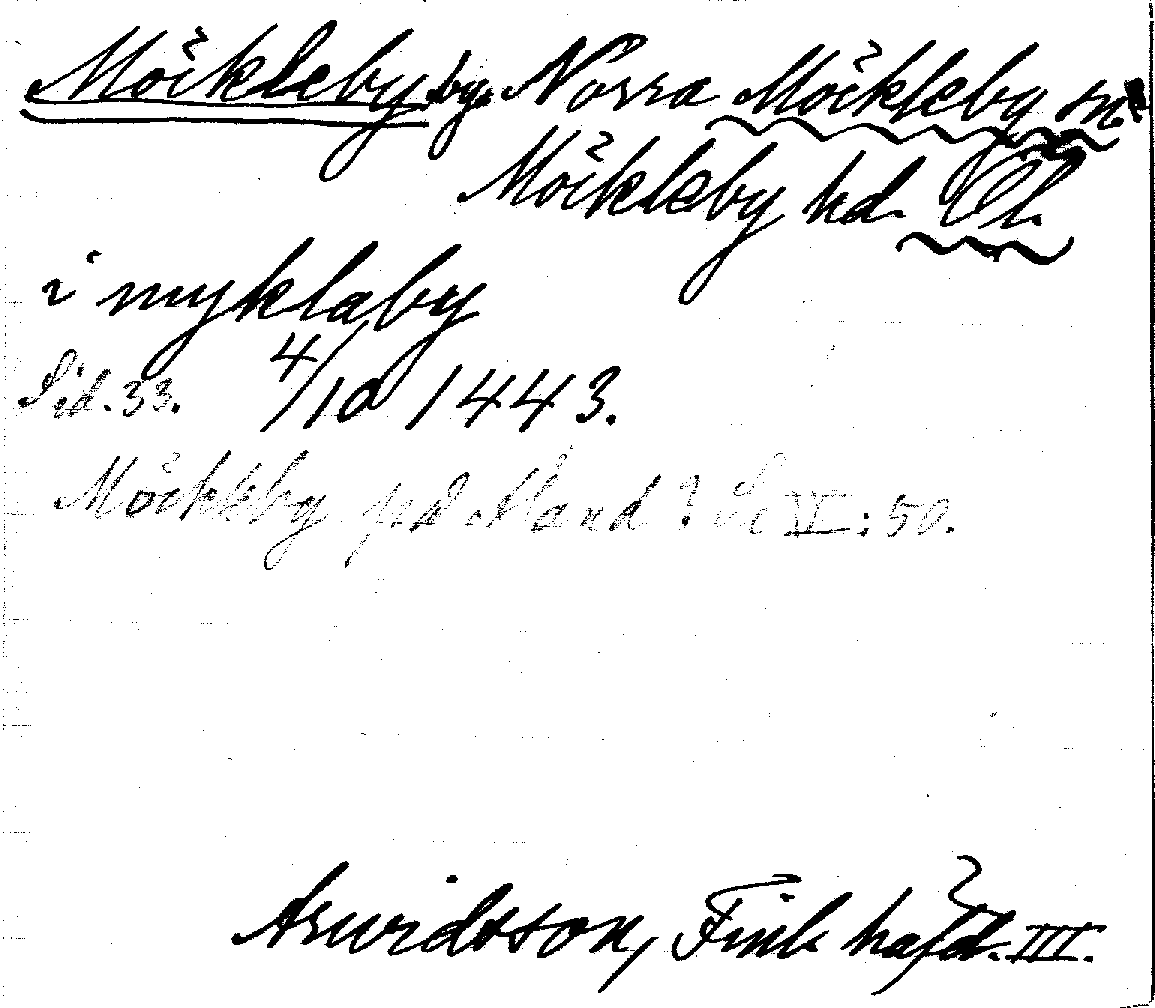 Möckleby by. Norra Möckleby sn.
Möckleby hd. Öl.
i myklaby
Sid. 33. 4/10 1443.
Möckleby på Åland? Se V: 50.
Arwidsson, Finl. häfd. III.